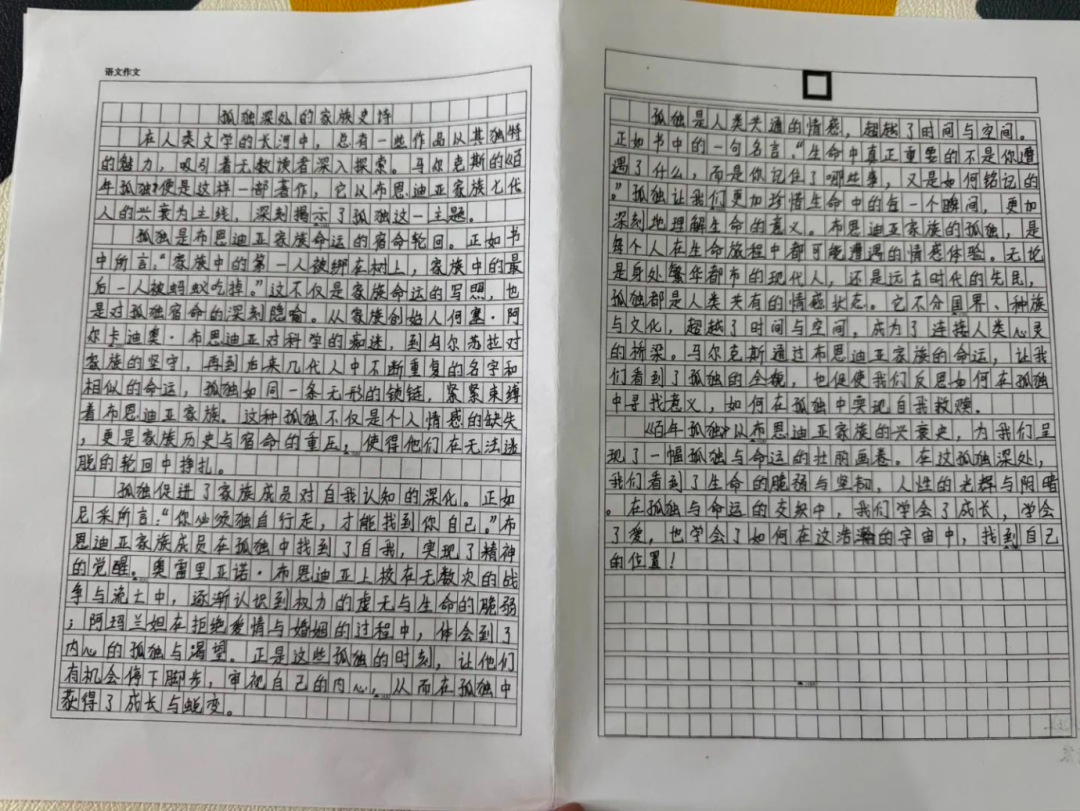 语文作文
孤独深处的家族史诗
在人类文学的长河中，总有一些作品以其独特
的魅力，吸引着无数读者深入探索。马尔克斯的《百
年孤独》便是这样一部著作，它以布恩迪亚家族七代
人的兴衰为主线，深刻揭示了孤独这一主题。
孤独是布恩迪亚家族命运的宿命轮回。正如书
中所言：“家族中的第一人被绑在树上，家族中的最
后一人被蚂蚁吃掉。”这不仅是家族命运的写照，也
是对孤独宿命的深刻隐喻。从家族创始人何塞·阿
尔卡迪奥·布恩迪亚对科学的痴迷，到乌尔苏拉对
家族的坚守，再到后来几代人中不断重复的名字和
相似的命运，孤独如同一条无形的锁链，紧紧束缚
着布恩迪亚家族。这种孤独不仅是个人情感的缺失
，更是家族历史与宿命的重压，使得他们在无法逃
脱的轮回中挣扎。
孤独促进了家族成员对自我认知的深化。正如
尼采所言：“你必须独自行走，才能找到你自己。”布
恩迪亚家族成员在孤独中找到了自我，实现了精神
的觉醒。奥雷里亚诺·布恩迪亚上校在无数次的战
争与流亡中，逐渐认识到权力的虚无与生命的脆弱
；阿玛兰妲在拒绝爱情与婚姻的过程中，体会到了
内心的孤独与渴望。正是这些孤独的时刻，让他们
有机会停下脚步，审视自己的内心，从而在孤独中
获得了成长与蜕变。
孤独是人类共通的情感，超越了时间与空间。
正如书中的一句名言：“生命中真正重要的不是你遭
遇了什么，而是你记住了哪些事，又是如何铭记的
。”孤独让我们更加珍惜生命中的每一个瞬间，更加
深刻地理解生命的意义。布恩迪亚家族的孤独，是
每个人在生命旅程中都可能遭遇的情感体验。无论
是身处繁华都市的现代人，还是远古时代的先民，
孤独都是人类共有的情感状态。它不分国界、种族
与文化，超越了时间与空间，成为了连接人类心灵
的桥梁。马尔克斯通过布恩迪亚家族的命运，让我
们看到了孤独的全貌，也促使我们反思如何在孤独
中寻找意义，如何在孤独中实现自我救赎。
《百年孤独》以布恩迪亚家族的兴衰史，为我们呈
现了一幅孤独与命运的壮丽画卷。在这孤独深处，
我们看到了生命的脆弱与坚韧，人性的光辉与阴暗
。在孤独与命运的交织中，我们学会了成长，学会
了爱，也学会了如何在这浩瀚的宇宙中，找到自己
的位置！